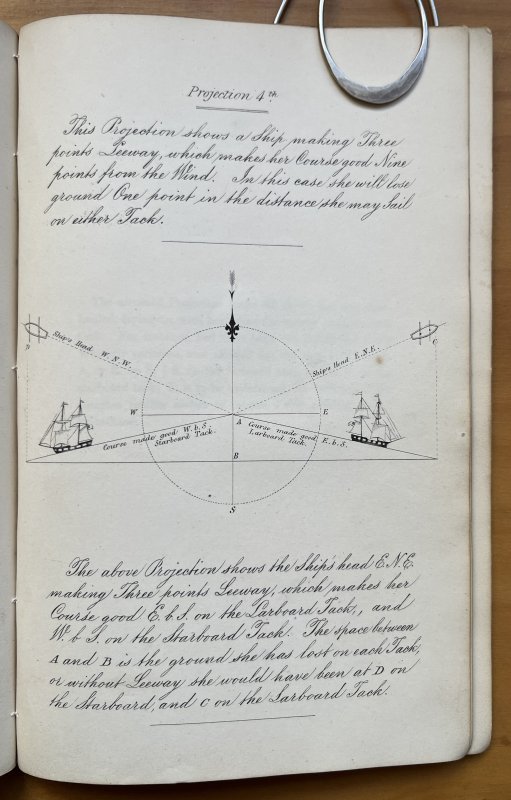 Projection 4th.
This Projection shows a Ship making Three
points Leeway, which makes her Course good Nine
points from the Wind. In this case she will lose
ground One point in the distance she may Sail
on either Tack.
D
C
Ship's Head W.N.W.
Ship's Head E.N.E.
W
E
A
Course made good W.b.S.
Starboard Tack.
Course made good E.b.S.
Larboard Tack.
B
S
The above Projection shows the Ship's head E.N.E.
making Three points Leeway, which makes her
Course good E.b.S. on the Larboard Tack, and
W.b S. on the Starboard Tack. The space between
A and B is the ground she has lost on each Tack,
or without Leeway she would have been at D on
the Starboard, and C on the Larboard Tack.